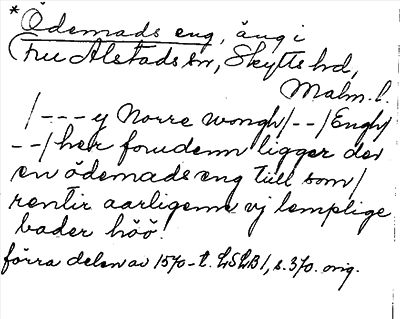 *Ödemads eng, äng i
Fru Alstads sn, Skytts hd,
Malm. l.
/--- y Norre wongh/--/Engh/
--/ her forudenn ligger der
en ödemads eng till som/
rentir aarligenne vj lemplige
bader höö.
förra delen av 1570-t. LSLB 1, s. 370. orig.